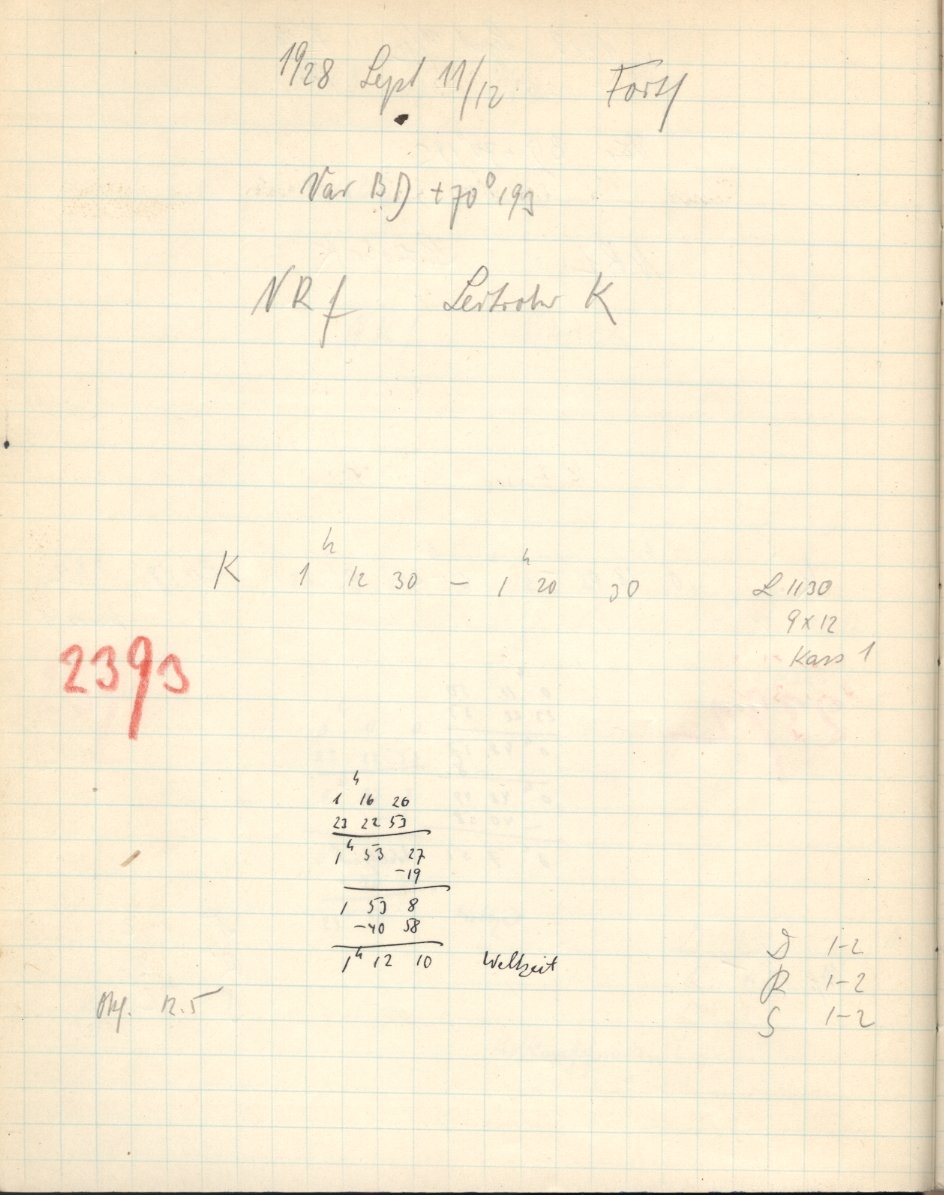 1928 Sept 11/12 Forts
Var BD +70° 193
NRf Leitrohr K
K 1h 12 30 – 1h 20 30
L 1130
9x12
Kass 1
2393
1h 16 20
23 22 53
1h 53 27
-19
1 53 8
-40 58
1h 12 10 Weltzeit
D 1-2
R 1-2
S 1-2
12.5